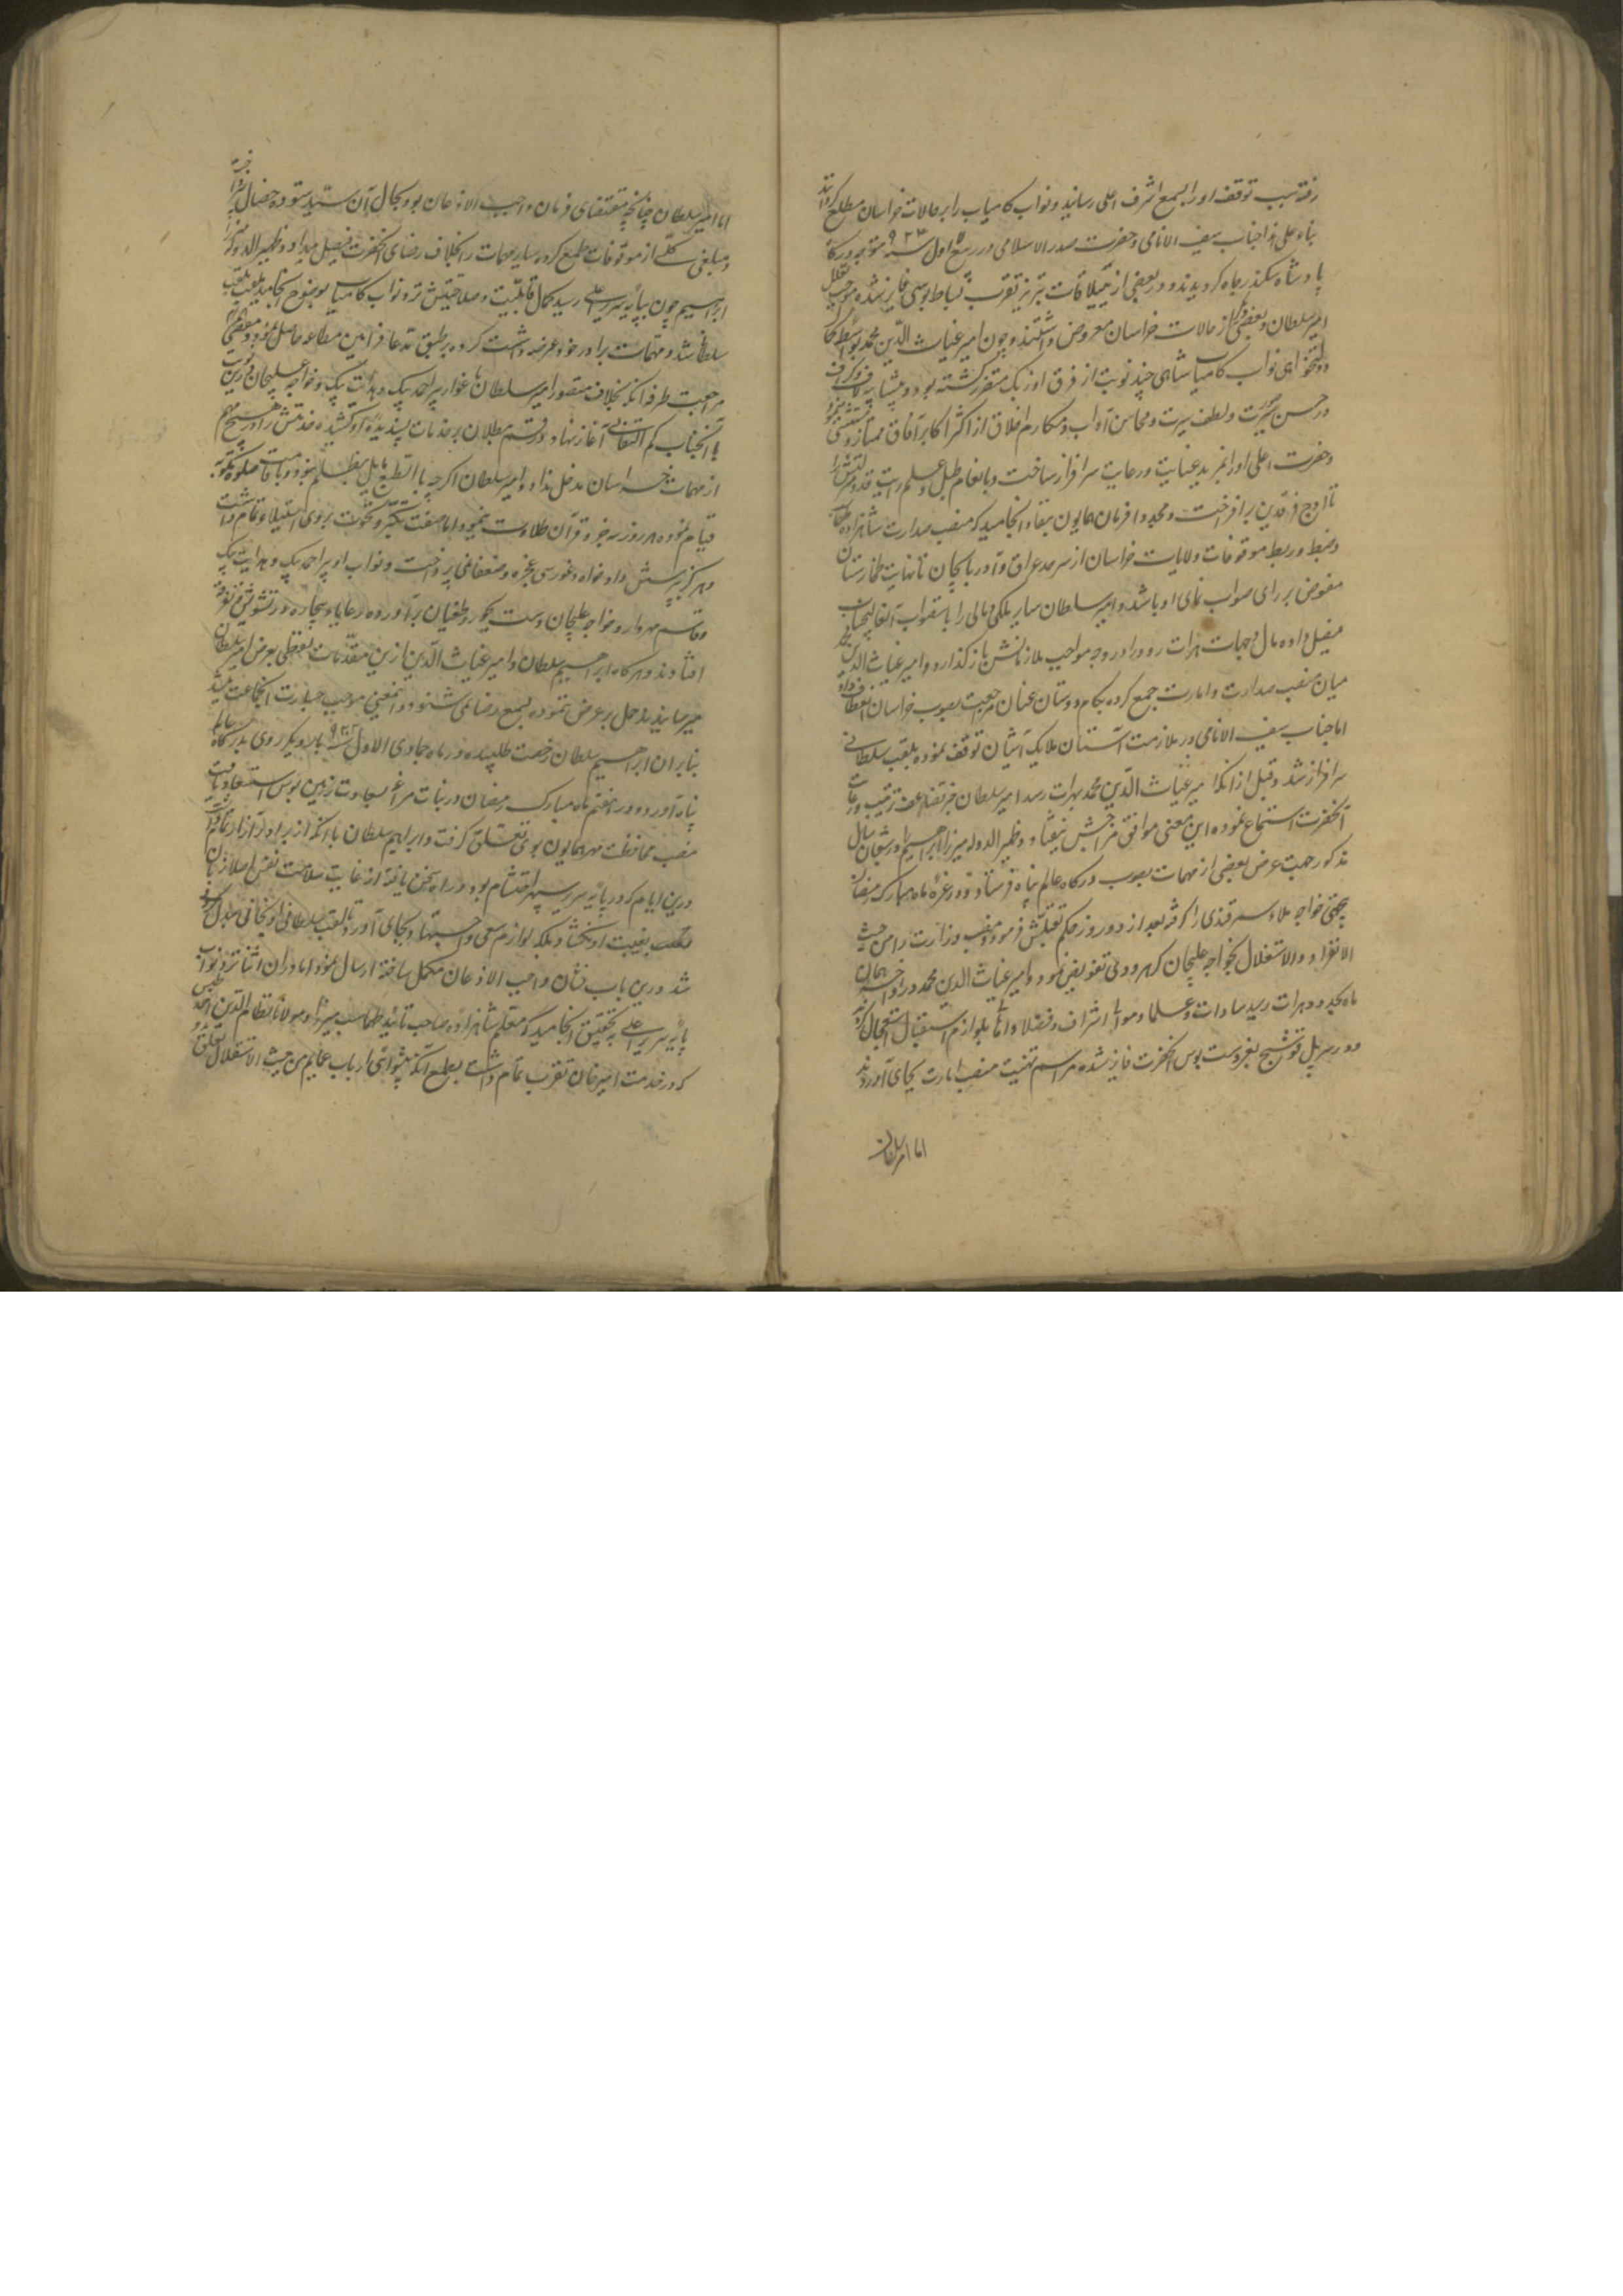 رفته سبب توقف او را بسمع اشرف اعلی رسانید و نواب کامیاب را بر حالات خراسان مطلع گردانید
بناء علی هذا جناب سیف الانامی و حضرت صدر الاسلامی در ربیع الاول سنه ۹۲۴ متوجه درگاه
پادشاه سکندر جاه گردیدند و در بعضی از ییلاقات تبریز بقرب بساط بوسی فایز شده موجب تعلل
امیر سلطان و بعضی دیگر از حالات خراسان معروض داشتند و چون امیر غیاث الدین محمد بواسطه
دولتخواهی نواب کامیاب شاهی چند نوبت از فرق اوزبک متضرر گشته بود و
در حسن صورت و لطف سیرت و محاسن آداب و مکارم اخلاق از اکثر اکابر آفاق ممتاز و مستثنی
و حضرت اعلی او را بمزید عنایت و رعایت سرافراز ساخت و بانعام طبل و علم رایت قدر و منزلتش را
تا اوج فرقدین برافراخت و مجددا فرمان همایون بنفاذ انجامید که منصب صدارت شاهزاده
و ضبط و ربط موقوفات ولایات خراسان از سرحد عراق و آذربایجان تا نهایت طخارستان
مفوض بر رای صواب نمای او باشد و امیر سلطان سایر ملکی و مالی را باستصواب آنعالیجناب
فیصل داده مال و جهات هرات رود را در وجه مواجب ملازمانش بازگذارد و امیر غیاث الدین محمد
میان منصب صدارت و امارت جمع کرده بکام دوستان عنان مراجعت بصوب خراسان انعطاف داد
اما جناب سیف الانامی در ملازمت آستان ملایک آشیان توقف نموده بلقب سلطانی
سرافراز شد و قبل از آنکه امیر غیاث الدین محمد بهرات رسد امیر سلطان خبر تضاعف ترتیب و رعایت
آنحضرت استماع نموده این معنی موافق مزاجش نیفتاد و ظهیر الدوله میرزا ابراهیم را در شعبان سال
مذکور جهت عرض بعضی از مهمات بصوب درگاه عالم پناه فرستاد و در غره ماه مبارک رمضان
بی جهتی خواجه ملاء سمرقندی را گرفته بعد از دو روز حکم بقتلش فرمود و منصب وزارت را من حیث
الانفراد و الاستقلال بخواجه علیجان کهرودی تفویض نمود و امیر غیاث الدین محمد در اواخر همان
ماه بحدود هرات رسید سادات و علما و موالی و اشراف و فضلا و اهالی بلوازم استقبال استعجال کردند
و در سر پل قوشنج بعز دست بوس آنحضرت فایز شده مراسم تهنیت منصب امارت بجای آوردند
اما امیر سلطان
اما امیر سلطان چنانچه مقتضای فرمان واجب الاذعان بود بحال آن سید ستوده خصال نپرداخته
و مبلغی کلی از موقوفات طمع کرده سایر مهمات را بخلاف رضای آنحضرت فیصل میداد و ظهیر الدوله میرزا
ابراهیم چون بپایه سریر اعلی رسید کمال قابلیت و صلاحیتش نزد نواب کامیاب بوضوح انجامید بلقب
سلطانی شد و مهمات برادر خود عرضه داشت کرده بر طبق مدعا فرامین مطاعه حاصل نمود و
مراجعت طرفه آنکه بخلاف متصور امیر سلطان باغوای پیر احمد بیک و هدایت بیک و خواجه علیجان
با آنجناب کم التفاتی آغاز نهاد و رقم بطلان بر خدمات پسندیده او کشیده خدمتش را در هیچ مهم
از مهمات خراسان مدخل نداد و امیر سلطان اگرچه بالطبع مایل بظلم نبود و باقامت صلوة مکتوبه
قیام نموده هر روز سه جزو قرآن تلاوت مینمود اما صفت تکبر و نخوت بر وی استیلای تمام داشت
و هرگز بپرسش دادخواه و غوررسی عجزه و ضعفا نمی پرداخت و نواب او پیر احمد بیک و هدایت بیک
و قاسم مهردار و خواجه علیجان دست بجور و طغیان برآورده رعایا و بیچاره در تشویش و تفرقه
افتادند و هرگاه ابراهیم سلطان و امیر غیاث الدین ازین مقدمات لفظی بعرض امیر سلطان
میرسانیدند حمل بر غرض نموده بسمع رضا نمی شنود و آنمعنی موجب جسارت آنجماعت میشد
بنابران ابراهیم سلطان رخصت طلبیده در ماه جمادی الاول سنه بار دیگر روی بدرگاه عالم
پناه آورد و در هفتم ماه مبارک رمضان در بنات مراغه سعادت زمین بوس استسعاد یافت
منصب محافظت مهر همایون بوی تعلق گرفت و ابراهیم سلطان با آنکه از برادر آزار تمام داشت
درین ایام که در پایه سریر سپهر احتشام بود و راه سخن یافته از غایت سلامت نفس اصلا زبان
بغیبت او نگشاد بلکه لوازم سعی و اجتهاد بجای آورد تا لقب سلطانی او بخانی مبدل
شد و درین باب نشان واجب الاذعان مکمل ساخته ارسال نمود اما در آن اثنا نزد نواب
پایه سریر اعلی بتحقیق انجامید که معلم شاهزاده صاحب تأیید طهماسب میرزا و مولانا نظام الدین احمد طبسی
که در خدمت امیر خان تقرب تمام داشت بطمع آنکه پیشوائی ارباب عمایم من حیث الاستقلال تعلق